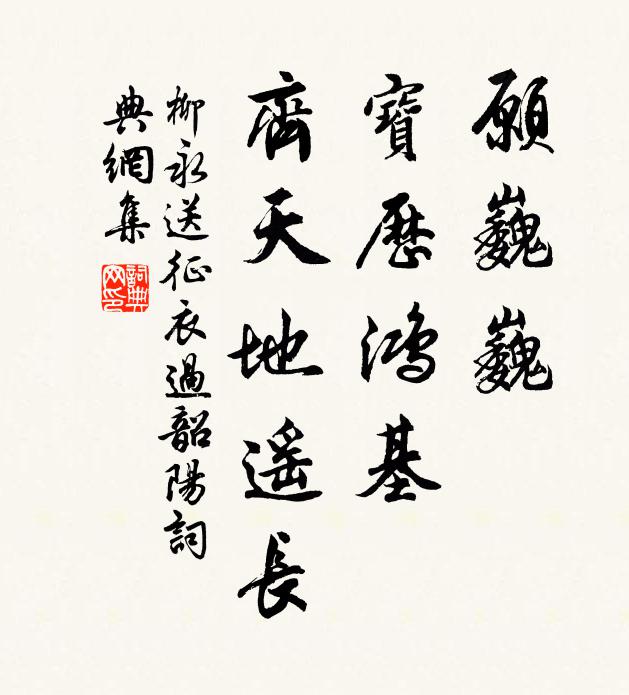 願巍巍
寶歷鴻基
齊天地遥長
柳永送征衣過韶陽詞
典網集
詞典网印